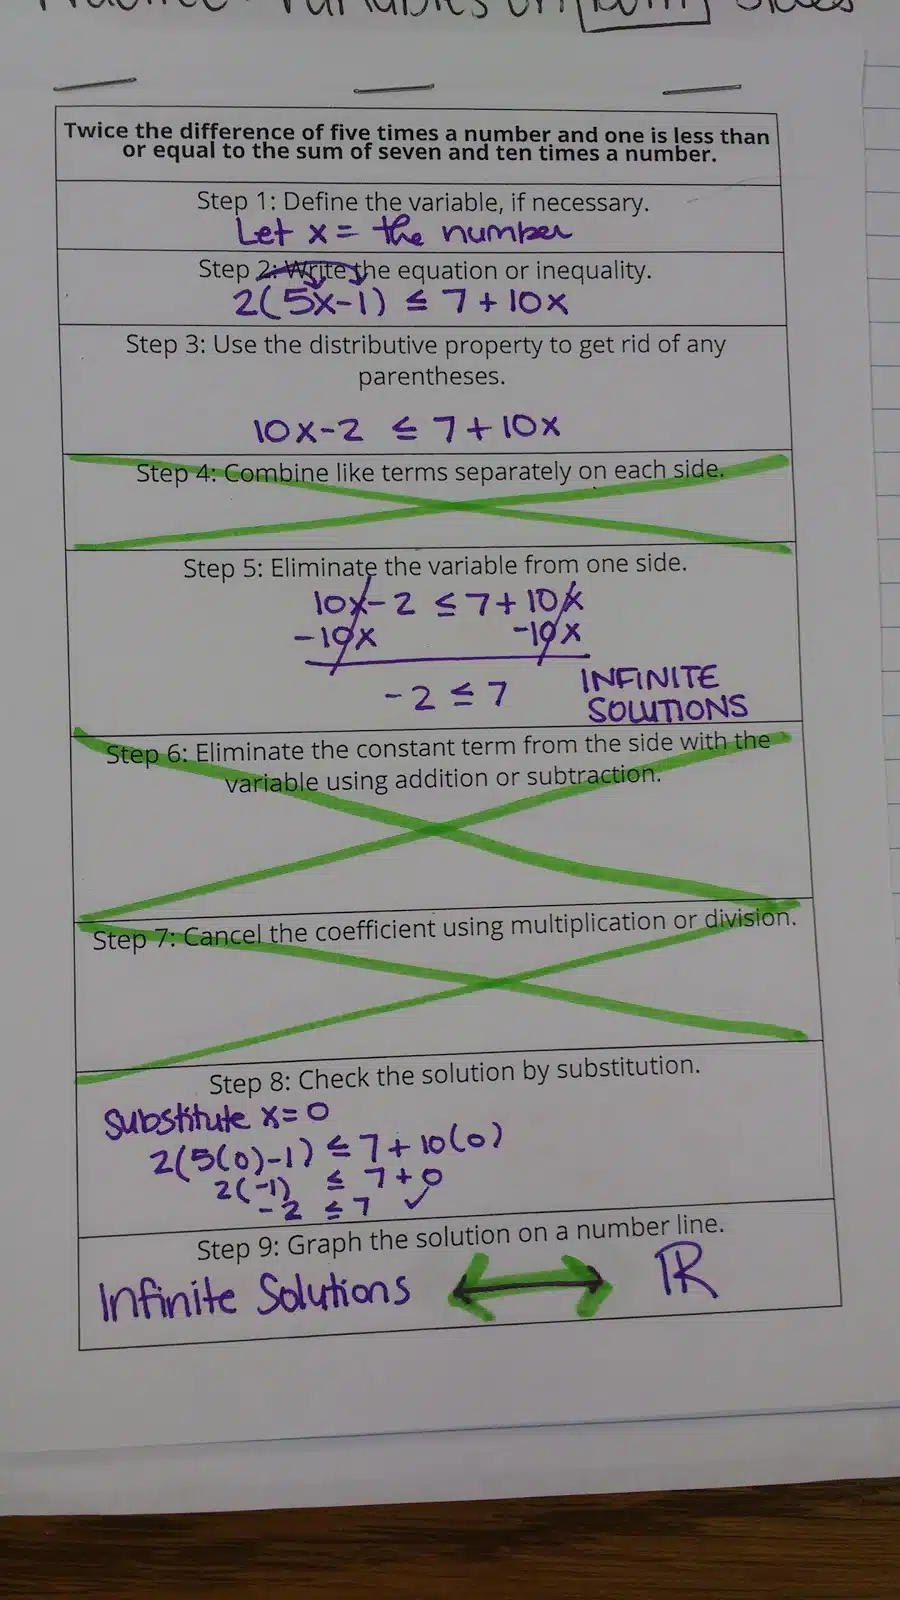 Practice: Variables on both sides
Twice the difference of five times a number and one is less than
or equal to the sum of seven and ten times a number.
Step 1: Define the variable, if necessary.
Let x = the number
Step 2: Write the equation or inequality.
2(5x-1) ≤ 7 + 10x
Step 3: Use the distributive property to get rid of any
parentheses.
10x-2 ≤ 7 + 10x
Step 4: Combine like terms separately on each side.
Step 5: Eliminate the variable from one side.
10x-2 ≤ 7 + 10x
-10x -10x
-2 ≤ 7 INFINITE
SOLUTIONS
Step 6: Eliminate the constant term from the side with the
variable using addition or subtraction.
Step 7: Cancel the coefficient using multiplication or division.
Step 8: Check the solution by substitution.
Substitute x=0
2(5(0)-1) ≤ 7 + 10(0)
2(-1) ≤ 7+0
-2 ≤ 7 ✓
Step 9: Graph the solution on a number line.
Infinite Solutions ℝ